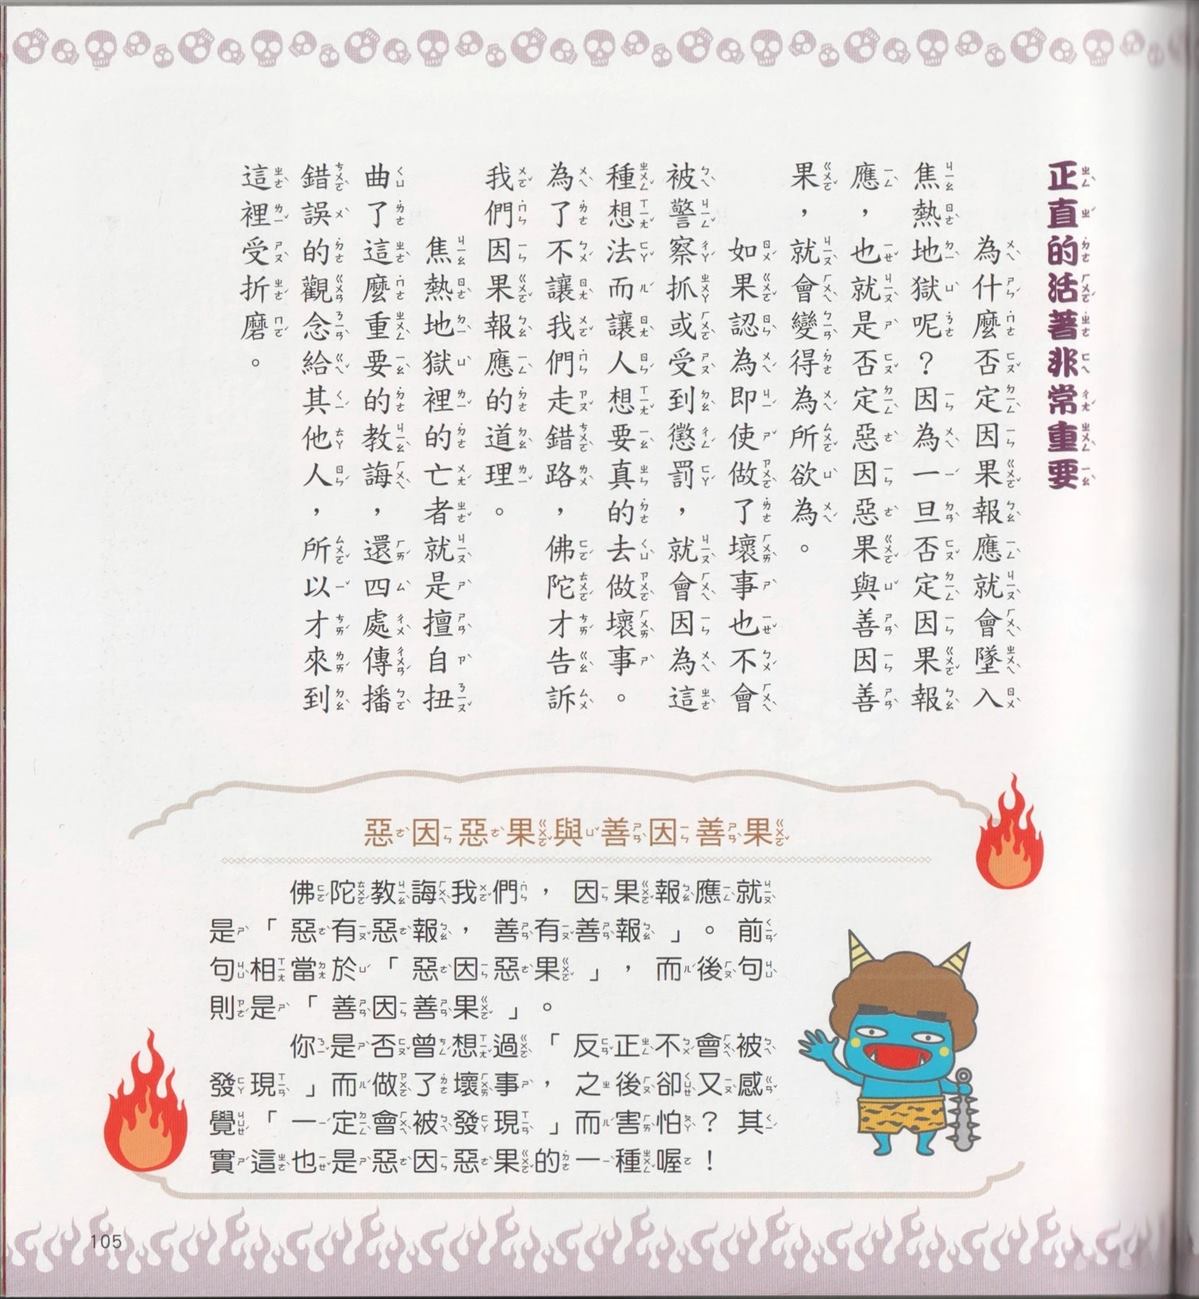 正直的活著非常重要
為什麼否定因果報應就會墜入
焦熱地獄呢？因為一旦否定因果報
應，也就是否定惡因惡果與善因善
果，就會變得為所欲為。
如果認為即使做了壞事也不會
被警察抓或受到懲罰，就會因為這
種想法而讓人想要真的去做壞事。
為了不讓我們走錯路，佛陀才告訴
我們因果報應的道理。
焦熱地獄裡的亡者就是擅自扭
曲了這麼重要的教誨，還四處傳播
錯誤的觀念給其他人，所以才來到
這裡受折磨。
惡因惡果與善因善果
佛陀教誨我們，因果報應就
是「惡有惡報，善有善報」。前
句相當於「惡因惡果」，而後句
則是「善因善果」。
你是否曾想過「反正不會被
發現」而做了壞事，之後卻又感
覺「一定會被發現」而害怕？其
實這也是惡因惡果的一種喔！
105